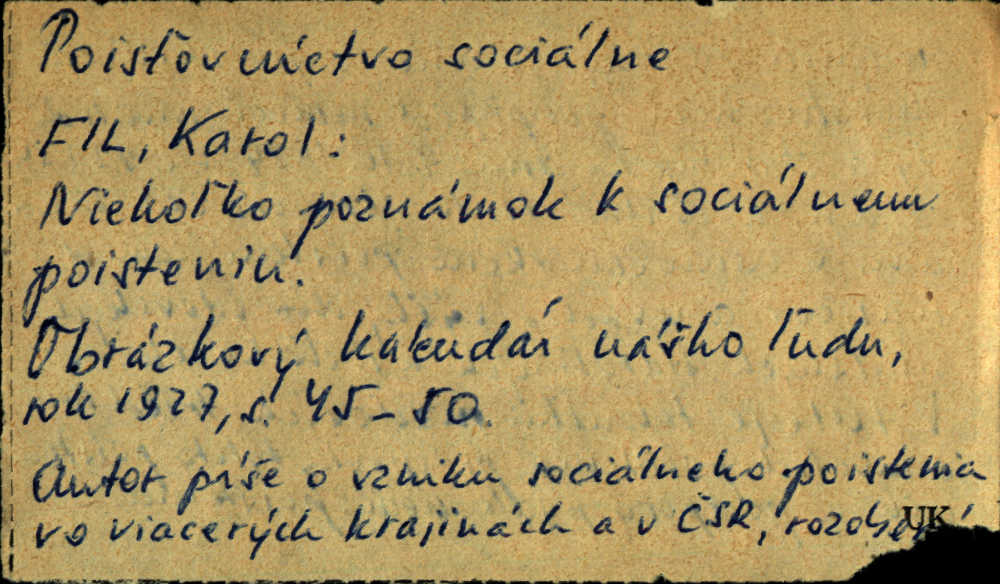 Poisťovníctvo sociálne
FIL, Karol:
Niekoľko poznámok k sociálnemu
poisteniu.
Obrázkový kalendár nášho ľudu,
rok 1927, s. 45-50.
Autor píše o vzniku sociálneho poistenia
vo viacerých krajinách a v ČSR,
UK